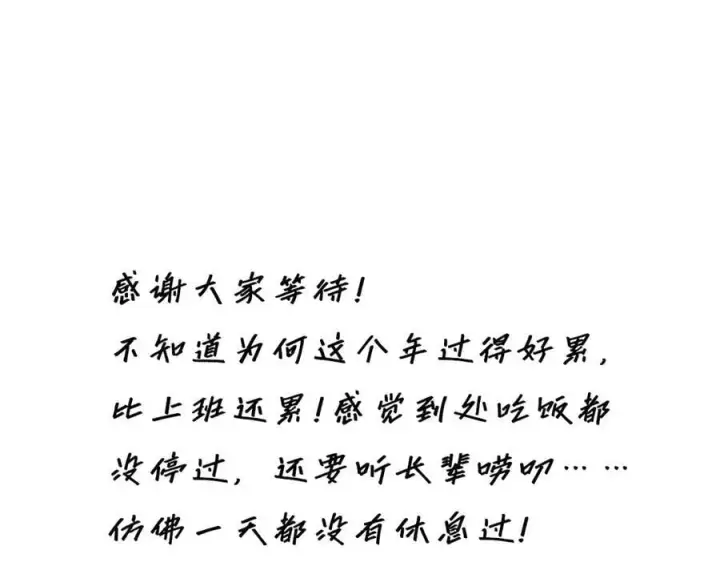 感谢大家等待!
不知道为何这个年过得好累,
比上班还累!感觉到处吃饭都
没停过,还要听长辈唠叨……
仿佛一天都没有休息过!